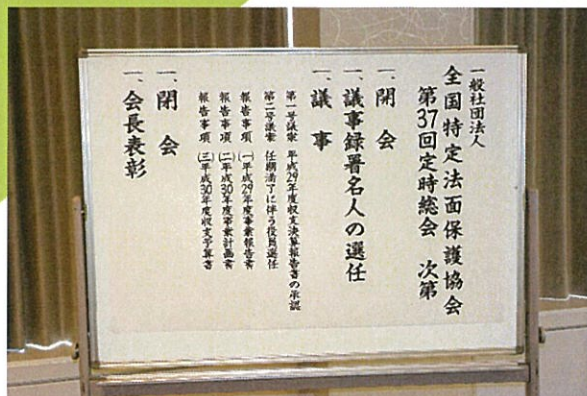 一般社団法人
全国特定法面保護協会
第37回定時総会 次第
一、開会
一、議事録署名人の選任
一、議事
第一号議案 平成29年度収支決算報告書の承認
第二号議案 任期満了に伴う役員選任
報告事項 (一)平成29年度事業報告書
報告事項 (二)平成30年度事業計画書
報告事項 (三)平成30年度収支予算書
一、閉会
一、会長表彰